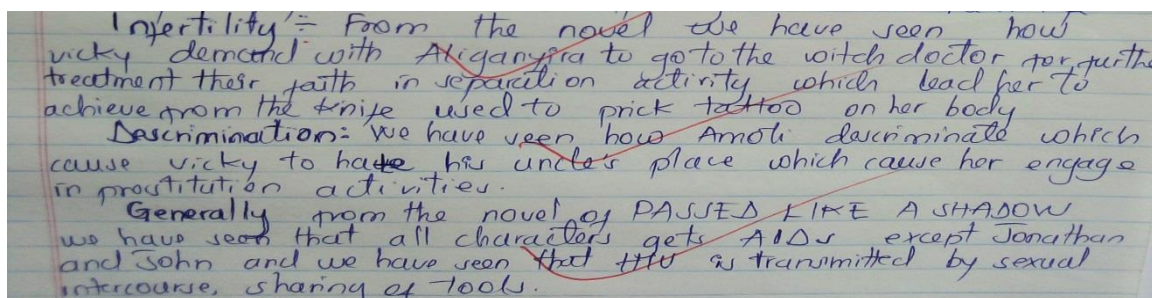 Infertility = From the novel we have seen how
vicky demand with Aliganyira to go to the witch doctor for furthe
treatment their faith in separation activity which lead her to
achieve from the knife used to prick tattoo on her body
Dascrimination: We have seen how Amoli dascriminate which
cause vicky to hate his uncle's place which cause her engage
in prostitution activities.
Generally from the novel of PASSED LIKE A SHADOW
we have seen that all characters gets AIDs except Jonathan
and John and we have seen that HIV is transmitted by sexual
intercourse, sharing of Tools.